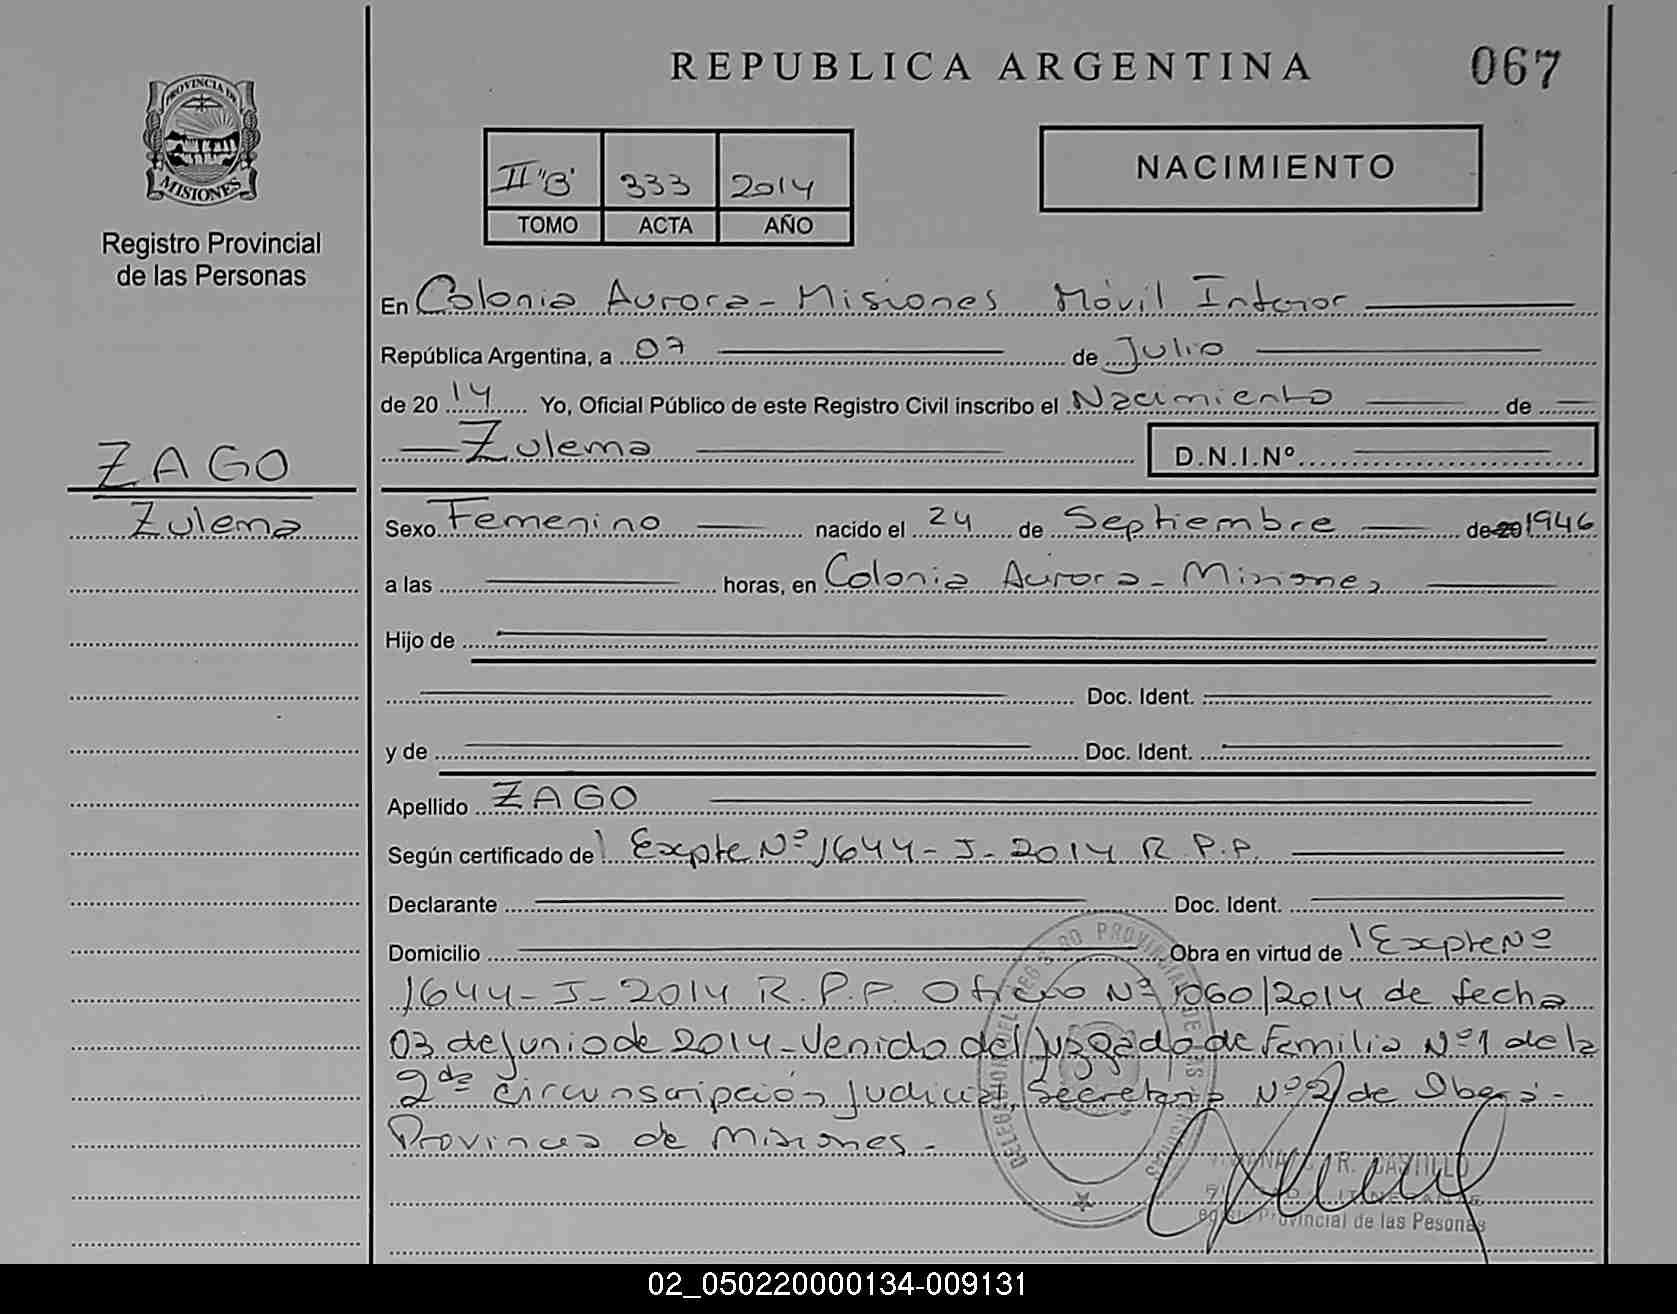 REPUBLICA ARGENTINA
067
PROVINCIA DE
MISIONES
Registro Provincial
de las Personas
II "B" 333 2014
TOMO ACTA AÑO
NACIMIENTO
En Colonia Aurora - Misiones Móvil Interior
República Argentina, a 07 de Julio
de 20 14 Yo, Oficial Público de este Registro Civil inscribo el Nacimiento de
Zulema D.N.I.Nº
ZAGO
Zulema
Sexo Femenino nacido el 24 de Septiembre de 20 1946
a las horas, en Colonia Aurora - Misiones
Hijo de
Doc. Ident.
y de Doc. Ident.
Apellido ZAGO
Según certificado de Expte Nº 1644 - J - 2014 R.P.P.
Declarante Doc. Ident.
Domicilio Obra en virtud de Expte Nº
1644 - J - 2014 R.P.P. Oficio Nº 1060/2014 de fecha
03 de junio de 2014 - Venido del Juzgado de Familia Nº 1 de la
2da circunscripción Judicial, Secretaria Nº 2 de
Provincia de Misiones -
R. CASTILLO
Provincial de las Pesonas
02_050220000134-009131